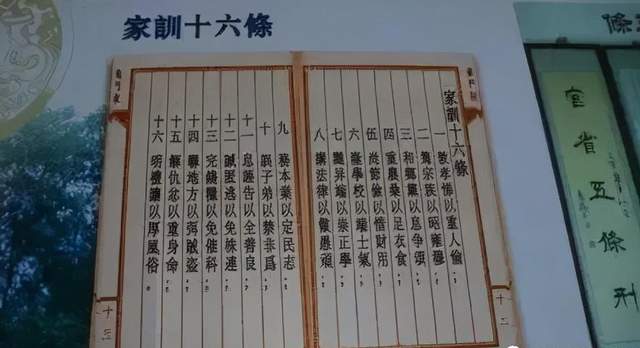 家訓十六條
家訓十六條
一 敦孝悌以重人倫；
二 篤宗族以昭雍穆；
三 和鄉黨以息爭訟；
四 重農桑以足衣食；
伍 尚節儉以惜財用；
六 隆學校以端士氣；
七 黜異端以崇正學；
八 講法律以儆愚頑；
九 務本業以定民志；
十 訓子弟以禁非為；
十一 息誣告以全善良；
十二 誡匿逃以免株連；
十三 完錢糧以免催科；
十四 聯地方以弭賊盜；
十五 解仇忿以重身命；
十六 明禮讓以厚風俗。
十三
十二
條
官省五條刑